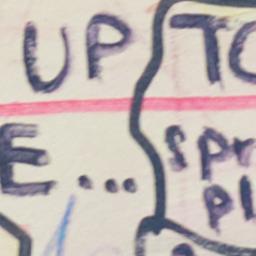 UP
E...
TO
spr
pl